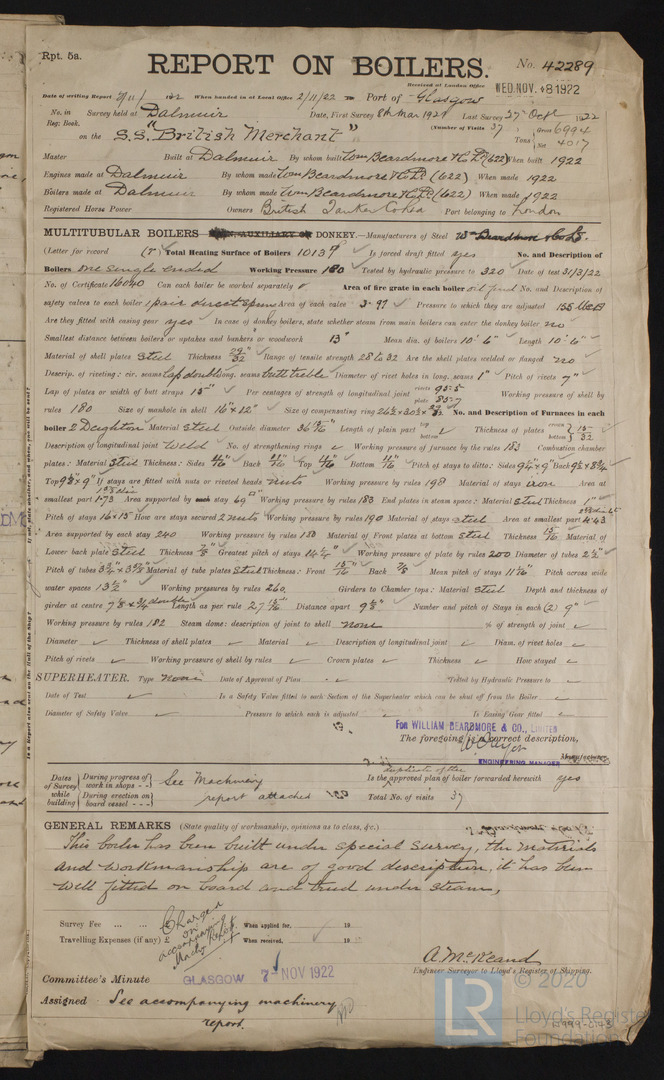 Rpt. 5a.
REPORT ON BOILERS.
No. 42289
Received at London Office
WED. NOV. 8 1922
Date of writing Report 192 When handed in at Local Office 2/11/22 Port of Glasgow
No. in Reg. Book. Survey held at Dalmuir Date, First Survey 8th Mar 1921 Last Survey 27 Oct 1922
on the S.S. "British Merchant" (Number of Visits 37 Tons Gross 6994 Net 4017
Master Built at Dalmuir By whom built Wm Beardmore & Co Ld (622) When built 1922
Engines made at Dalmuir By whom made Wm Beardmore & Co Ld (622) When made 1922
Boilers made at Dalmuir By whom made Wm Beardmore & Co Ld (622) When made 1922
Registered Horse Power Owners British Tanker Co Ltd Port belonging to London
MULTITUBULAR BOILERS MAIN, AUXILIARY OR DONKEY.—Manufacturers of Steel Wm Beardmore & Co Ld.
(Letter for record (T) Total Heating Surface of Boilers 1013 Is forced draft fitted yes No. and Description of
Boilers one single ended Working Pressure 180 Tested by hydraulic pressure to 320 Date of test 31/3/22
No. of Certificate 16040 Can each boiler be worked separately Area of fire grate in each boiler oil fuel No. and Description of
safety valves to each boiler 1 pair direct spring Area of each valve 3.97 Pressure to which they are adjusted 185
Are they fitted with easing gear yes In case of donkey boilers, state whether steam from main boilers can enter the donkey boiler no
Smallest distance between boilers or uptakes and bunkers or woodwork 13" Mean dia. of boilers 10' 6" Length 10' 6"
Material of shell plates Steel Thickness 29/32" Range of tensile strength 28 to 32 Are the shell plates welded or flanged no
Descrip. of riveting: cir. seams lap double long. seams butt treble Diameter of rivet holes in long. seams 1" Pitch of rivets 7"
Lap of plates or width of butt straps 15" Per centages of strength of longitudinal joint rivets 95.5 plate 85.7 Working pressure of shell by
rules 180 Size of manhole in shell 16" x 12" Size of compensating ring No. and Description of Furnaces in each
boiler 2 Deighton Material Steel Outside diameter Length of plain part top bottom Thickness of plates crown bottom 15/32
Description of longitudinal joint Weld No. of strengthening rings Working pressure of furnace by the rules 183 Combustion chamber
plates: Material Steel Thickness: Sides 11/16" Back 11/16" Top 11/16" Bottom 11/16" Pitch of stays to ditto: Sides 9¼ x 9" Back
Top If stays are fitted with nuts or riveted heads nuts Working pressure by rules 198 Material of stays iron Area at
smallest part 1.73 Area supported by each stay 69 Working pressure by rules 183 End plates in steam space: Material Steel Thickness 1"
Pitch of stays 16 x 15 How are stays secured 2 nuts Working pressure by rules 190 Material of stays Steel Area at smallest part 4.43
Area supported by each stay 240 Working pressure by rules Material of Front plates at bottom Steel Thickness 15/16 Material of
Lower back plate Steel Thickness 7/8" Greatest pitch of stays 14¼" Working pressure of plate by rules 200 Diameter of tubes 2½"
Pitch of tubes Material of tube plates Steel Thickness: Front 15/16" Back 7/8 Mean pitch of stays Pitch across wide
water spaces 13½" Working pressures by rules 260 Girders to Chamber tops: Material Steel Depth and thickness of
girder at centre double Length as per rule Distance apart Number and pitch of Stays in each (2) 9"
Working pressure by rules 182 Steam dome: description of joint to shell none % of strength of joint
Diameter Thickness of shell plates Material Description of longitudinal joint Diam. of rivet holes
Pitch of rivets Working pressure of shell by rules Crown plates Thickness How stayed
SUPERHEATER. Type none Date of Approval of Plan Tested by Hydraulic Pressure to
Date of Test Is a Safety Valve fitted to each Section of the Superheater which can be shut off from the Boiler
Diameter of Safety Valve Pressure to which each is adjusted Is Easing Gear fitted
FOR WILLIAM BEARDMORE & CO., LIMITED
The foregoing is a correct description,
ENGINEERING MANAGER Manufacturer.
Dates of Survey while building
During progress of work in shops - - See Machinery
During erection on board vessel - - - report attached
duplicate of the
Is the approved plan of boiler forwarded herewith yes
Total No. of visits 37
GENERAL REMARKS (State quality of workmanship, opinions as to class, &c.)
This boiler has been built under special survey, the materials
and workmanship are of good description, it has been
well fitted on board and tried under steam,
Survey Fee ... ... £ When applied for, 19
Travelling Expenses (if any) £ When received, 19
Charged on accompanying Machy Report
A. McKeand
Engineer Surveyor to Lloyd's Register of Shipping.
Committee's Minute GLASGOW 7 NOV 1922
Assigned See accompanying machinery
report.
© 2020
LR
Lloyd's Register
Foundation